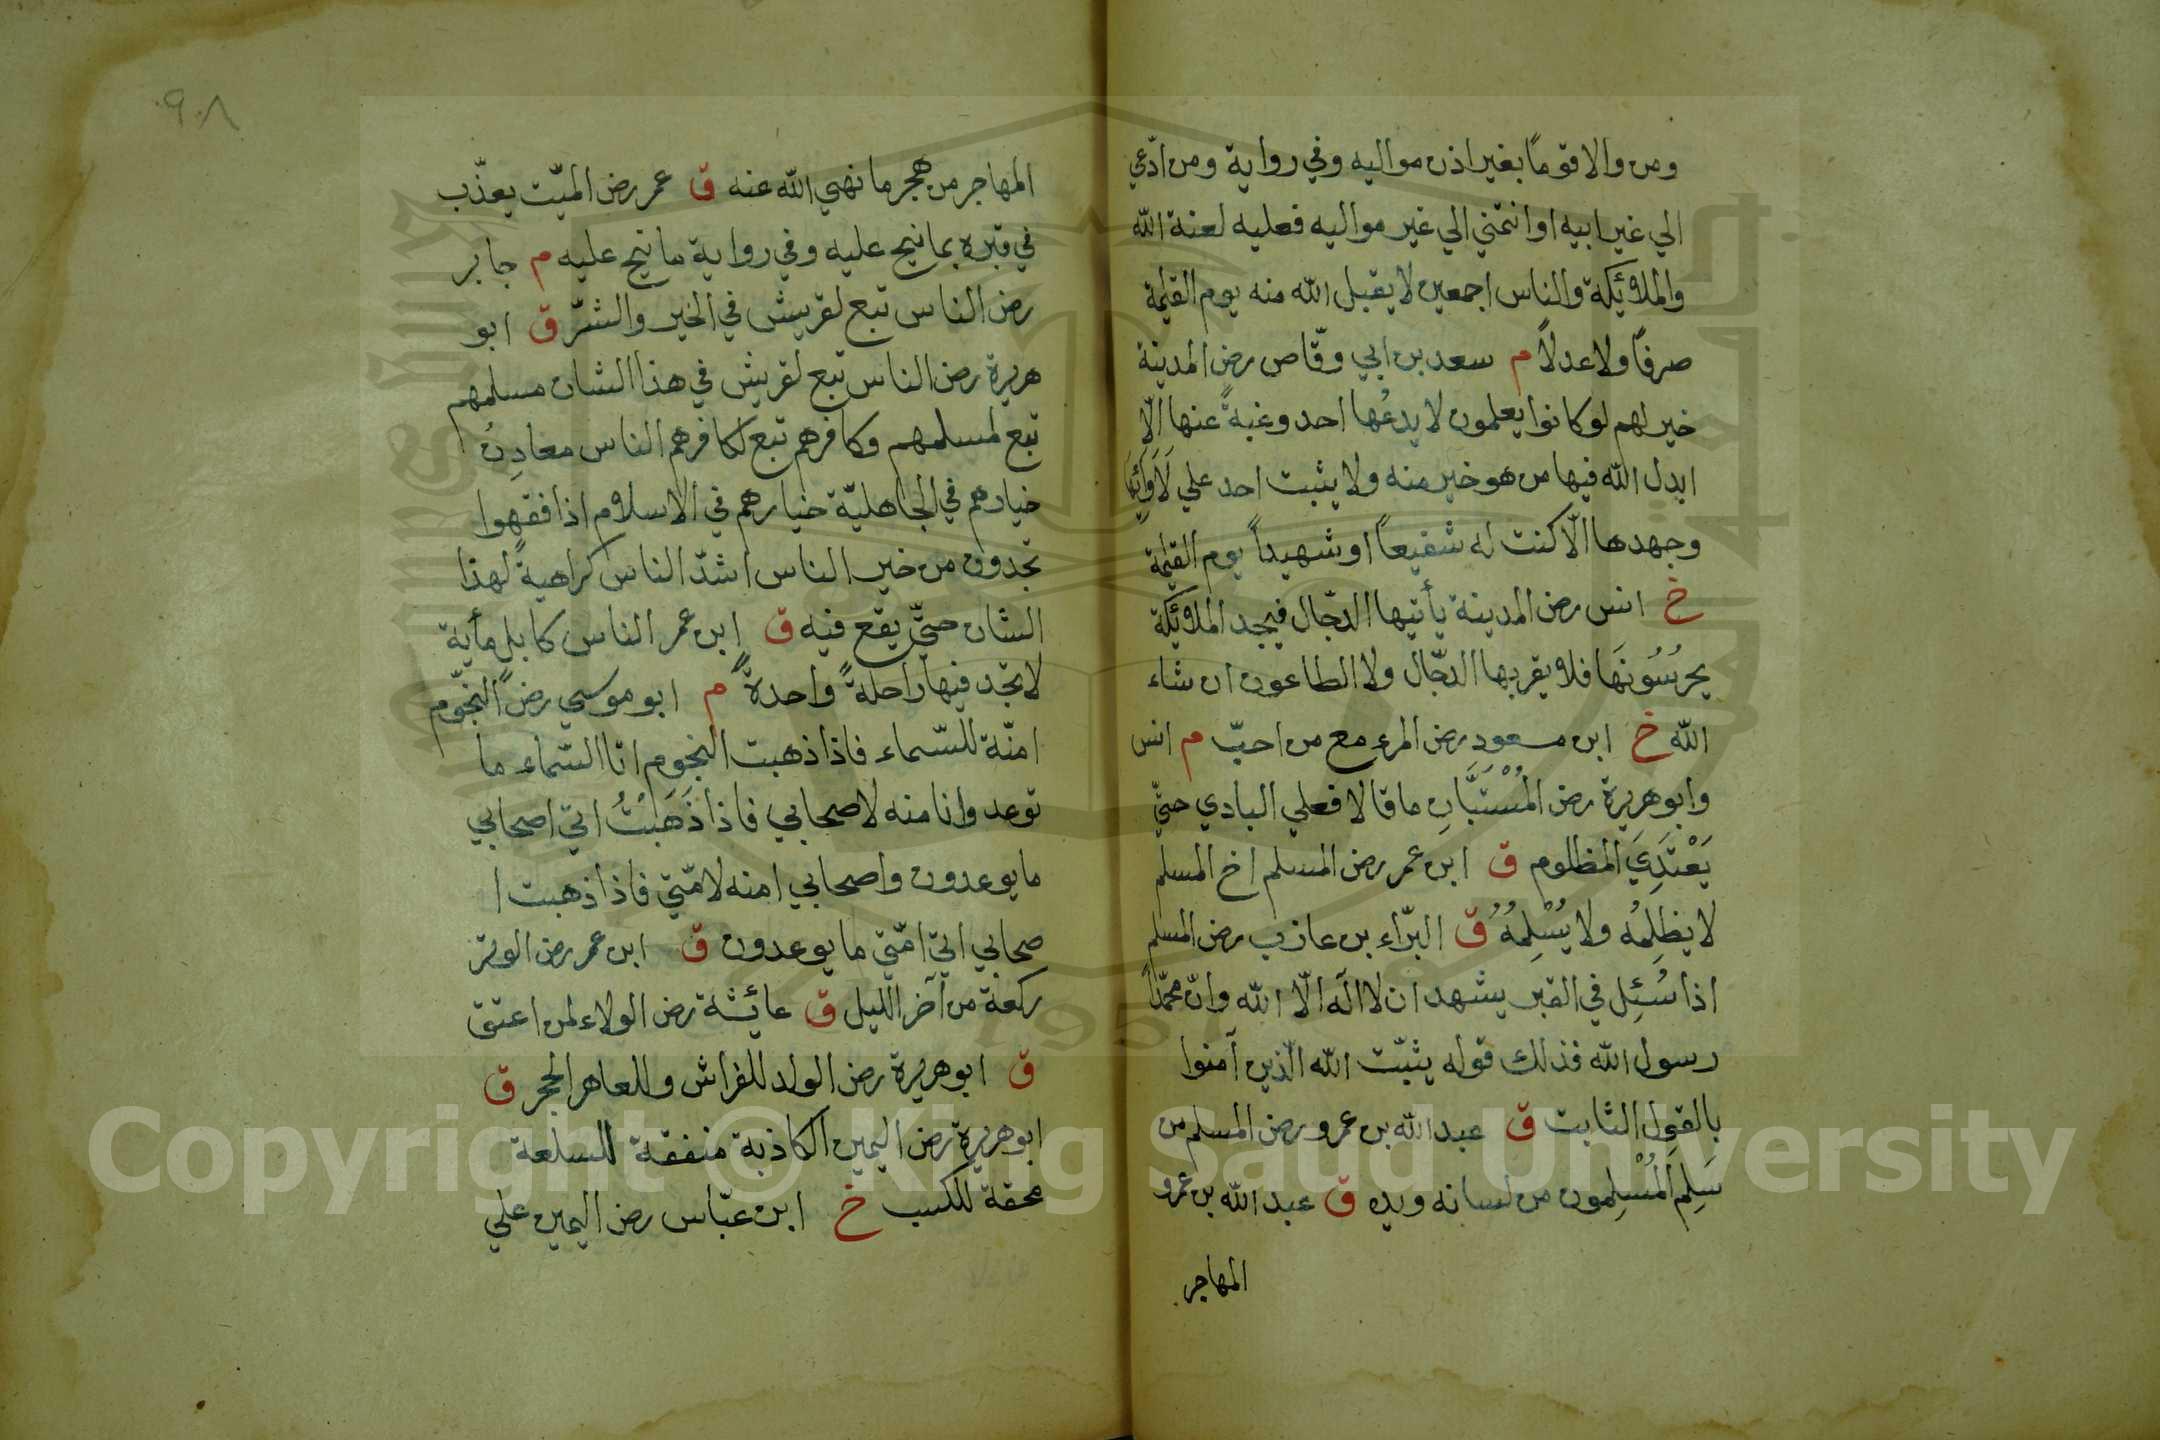 ومن والا قوما بغير اذن مواليه وفي رواية ومن ادّعي
الي غير ابيه او انتمني الي غير مواليه فعليه لعنة الله
والملائكة والناس اجمعين لا يقبل الله منه يوم القيمة
صرفًا ولا عدلاً م سعد بن ابي وقّاص رض المدينة
خير لهم لو كانوا يعلمون لا يدعُها احد وغبةً عنها الّا
ابدل الله فيها من هو خير منه ولا يثبت احد علي لَاوَائِها
وجهدها الّا كنت له شفيعاً او شهيداً يوم القيمة
خ انس رض المدينة يأتيها الدجّال فيجد الملائكة
يحرُسُونَهَا فلا يقربها الدجّال ولا الطاعون ان شاء
الله خ ابن مسعود رض المرء مع من احبّ م انس
وابو هريرة رض المُسْتَبَّانِ ما قالا فعلي البادي حتّي
يَعْتَدِيَ المظلوم ق ابن عمر رض المسلم اخ المسلم
لا يظلِمُه ولا يُسْلِمُهُ ق البرّاء بن عازب رض المسلم
اذا سُئِل في القبر يشهد ان لا اله الّا الله وانّ محمّداً
رسول الله فذلك قوله يثبّت الله الّذين آمنوا
بالقول الثابت ق عبد الله بن عمرو رض المسلم من
سَلِمَ المُسْلِمون من لسانه ويده ق عبد الله بن عمرو
المهاجر
٩٠٨
المهاجر من هجر ما نهي الله عنه ق عمر رض الميّت يعذّب
في قبره بما نيح عليه وفي رواية ما نيح عليه م جابر
رض الناس تبع لقريش في الخير والشرّ ق ابو
هريرة رض الناس تبع لقريش في هذا الشان مسلمهم
تبع لمسلمهم وكافرهم تبع لكافرهم الناس معادِنُ
خيارهم في الجاهليّة خيارهم في الاسلام اذا فقهوا
تجدون من خير الناس اشدّ الناس كراهيةً لهذا
الشان حتّي يقع فيه ق ابن عمر الناس كابل مأية
لا تجد فيها راحلةً واحدةً م ابو موسي رض النجّوم
امنّة للسّماء فاذا ذهبت النجوم اتا السّماء ما
توعد وانا منه لاصحابي فاذا ذَهَبْتُ اتي اصحابي
ما يوعدون واصحابي امنه لامّتي فاذا ذهبت ا
صحابي اتي امّتي ما يوعدون ق ابن عمر رض الوتر
ركعة من آخر الليل ق عائشة رض الولاء لمن اعتق
ق ابو هريرة رض الولد للفراش وللعاهر الحجر ق
ابو هريرة رض اليمين الكاذبة منفقة للسلعة
محقة للكسب خ ابن عبّاس رض اليمين علي
Copyright © King Saud University
1957